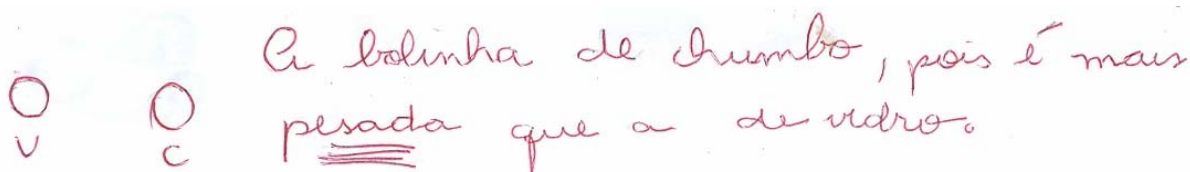 A bolinha de chumbo, pois é mais
pesada que a de vidro.
V C